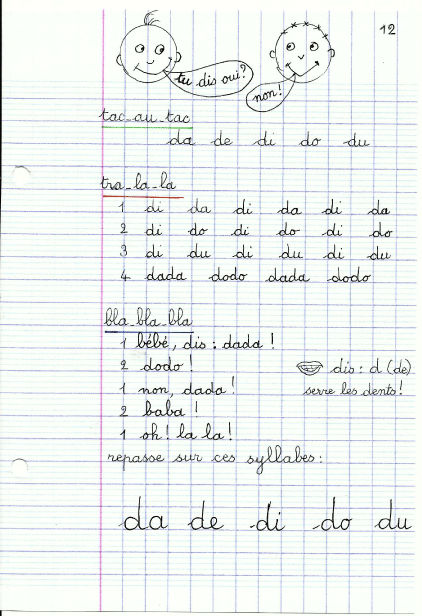 12
tu dis oui?
non!
tac_au_tac
da de di do du
tra_la_la
1 di da di da di da
2 di do di do di do
3 di du di du di du
4 dada dodo dada dodo
bla_bla_bla
1 bébé, dis : dada !
2 dodo !
dis : d (de)
1 non, dada !
serre les dents !
2 baba !
1 oh ! la la !
repasse sur ces syllabes :
da de di do du